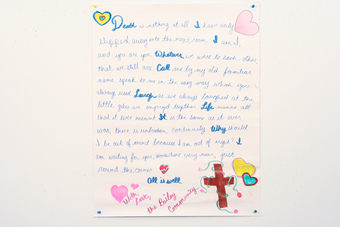 Death is nothing at all. I have only
slipped away into the next room. I am I,
and you are you. Whatever we were to each other,
that we still are. Call me by my old familiar
name, speak to me in the easy way which you
always used. Laugh as we always laughed at the
little jokes we enjoyed together. Life means all
that it ever meant. It is the same as it ever
was, there is unbroken continuity. Why should
I be out of mind because I am out of sight? I
am waiting for you, somewhere very near, just
round the corner.
All is well
With Love,
the
Community